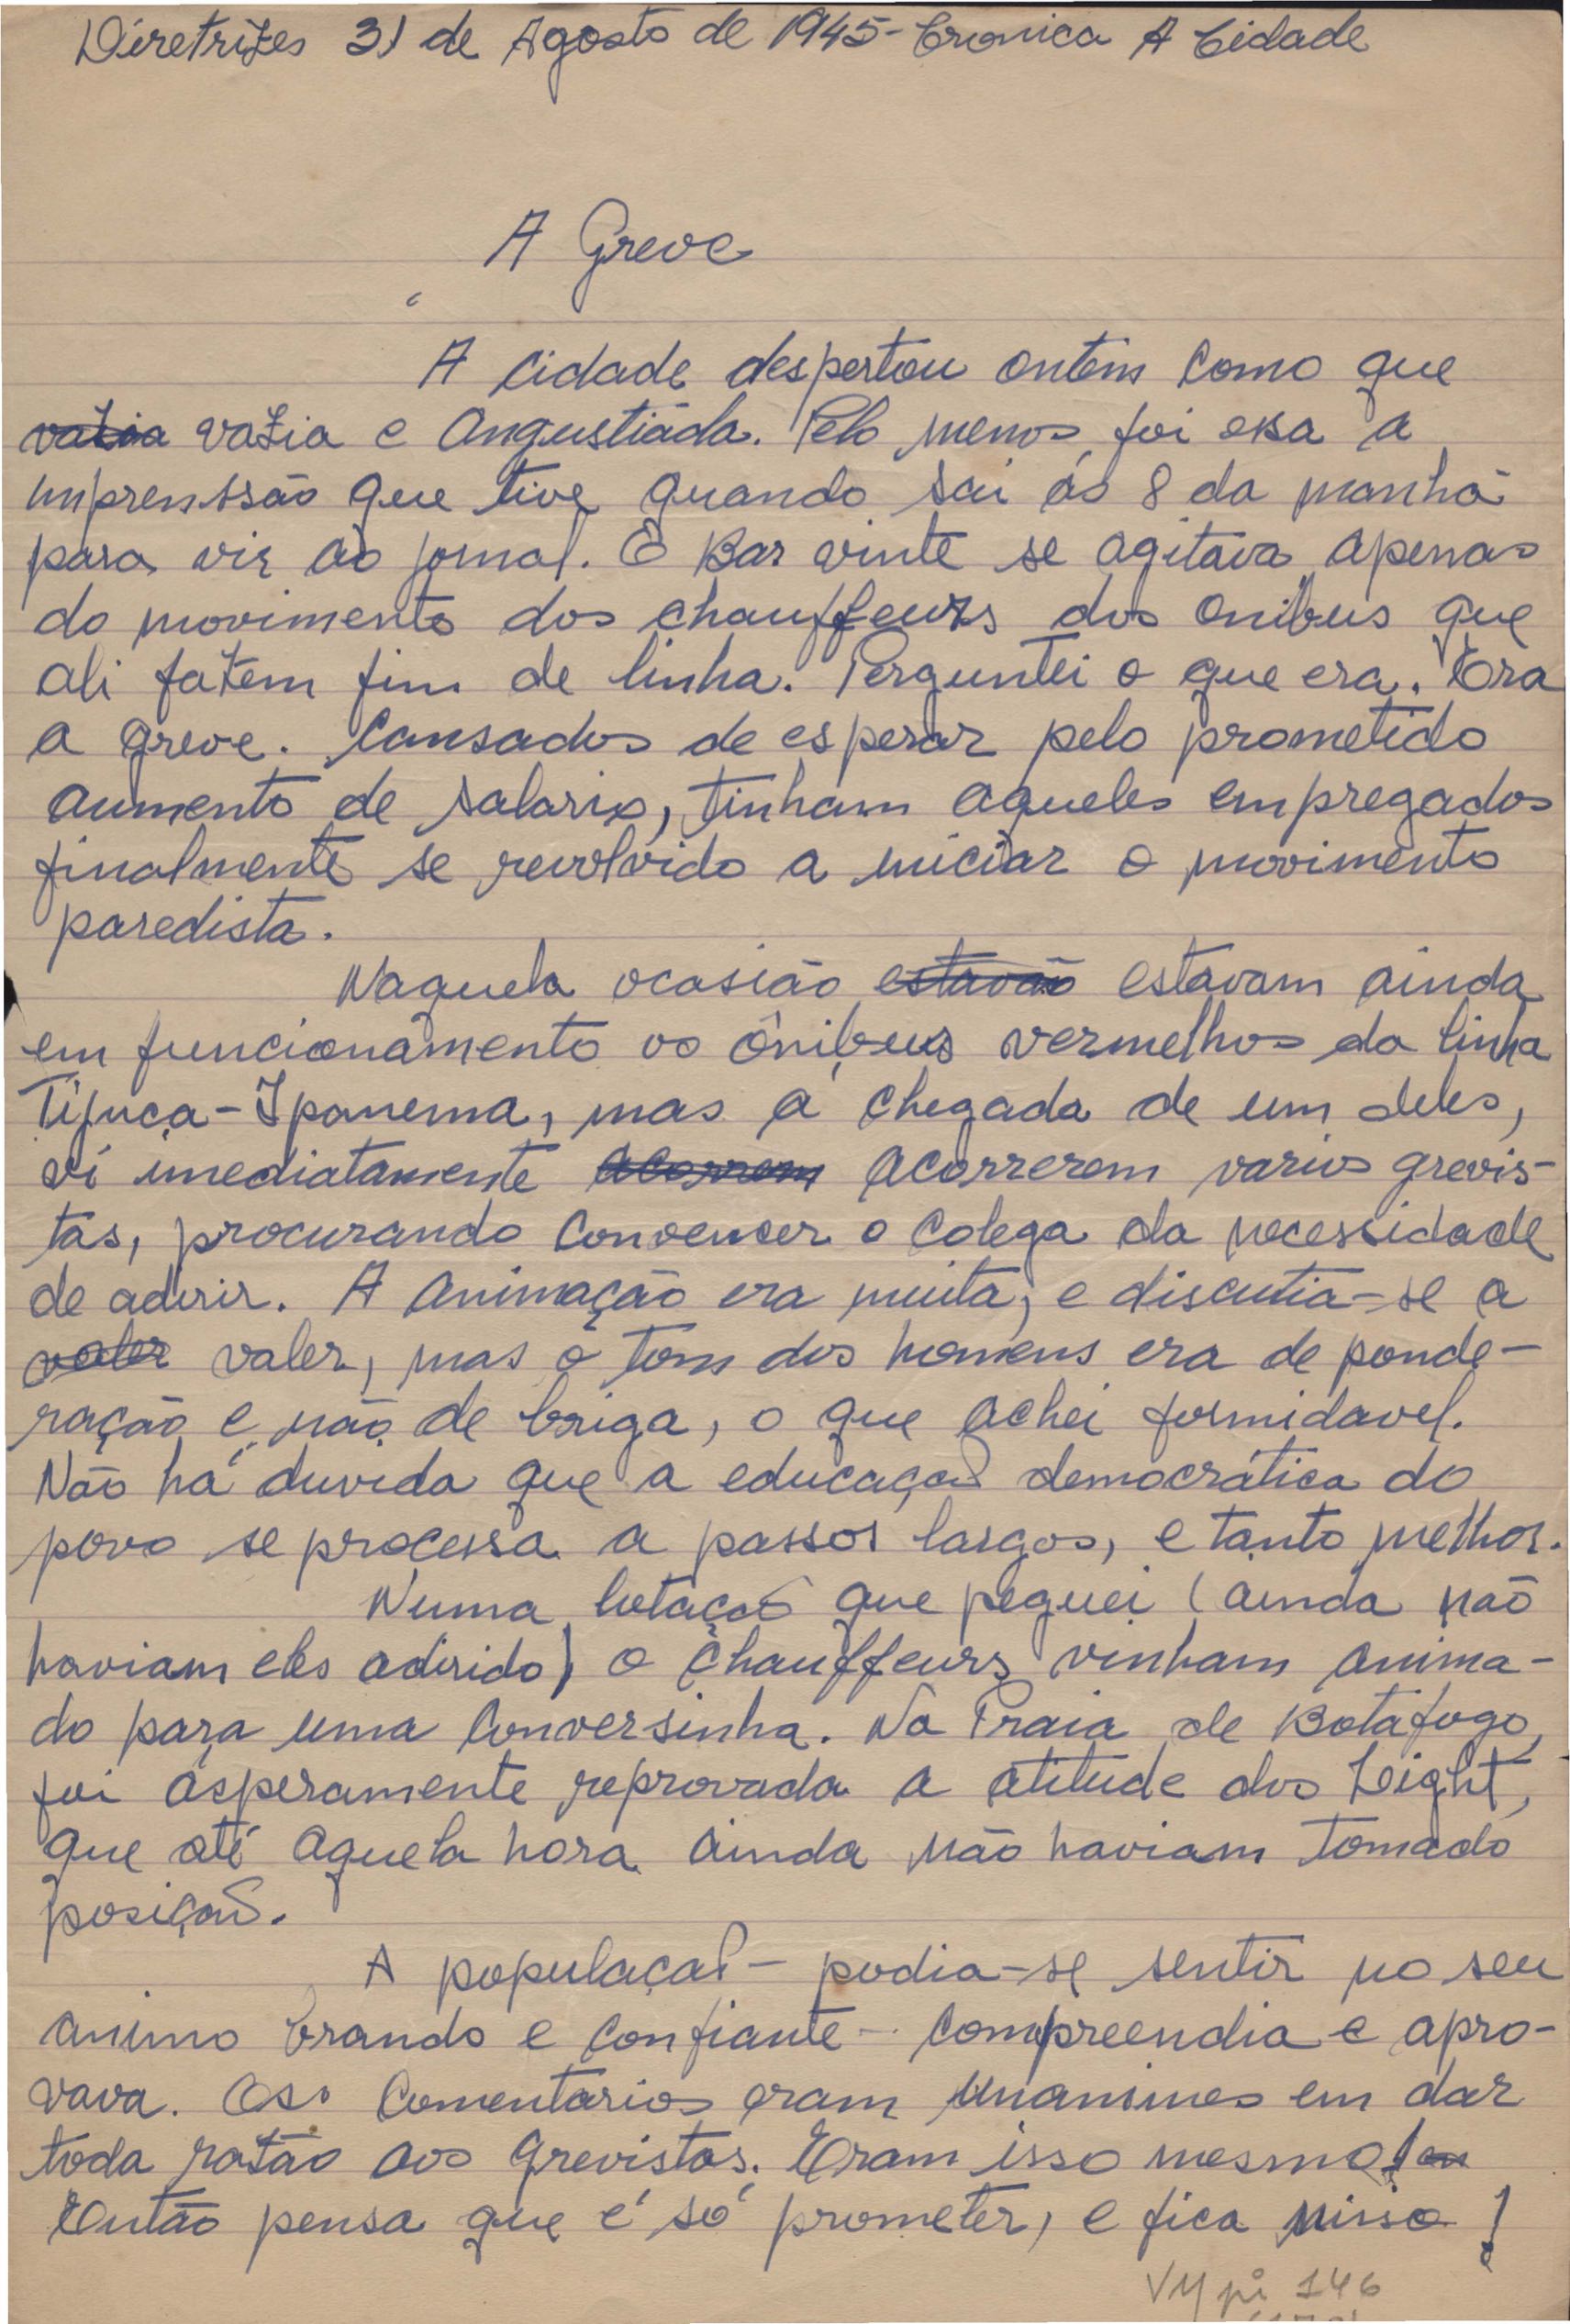 Diretrizes 31 de Agosto de 1945 - Cronica A Cidade
A Greve
A cidade despertou ontem como que
vazia vazia e angustiáda. Pelo menos foi essa a
imprenssão que tive quando sai ás 8 da manhã
para vir ao jornal. O Bar vinte se agitava apenas
do movimento dos chauffeurs dos onibus que
ali fazem fim de linha. Perguntei o que era. Era
a greve. Cansados de esperar pelo prometido
aumento de salario, tinham aqueles empregados
finalmente se revolvido a iniciar o movimento
paredista.
Naquela ocasião estavão estavam ainda
em funcionamento os ônibus vermelhos da linha
Tijuca-Ipanema, mas á chegada de um deles,
vi imediatamente acorrem acorrerem varios grevis-
tas, procurando convencer o colega da necessidade
de aderir. A animação era muita, e discutia-se a
valer valer, mas o tom dos homens era de ponde-
ração e não de briga, o que achei formidavel.
Não há duvida que a educação democrática do
povo se processa a passos largos, e tanto melhor.
Numa lotação que peguei (ainda não
haviam eles aderido) o chauffeurs vinham anima-
do para uma conversinha. Na Praia de Botafogo,
foi ásperamente reprovada a atitude dos Leight,
que até aquela hora ainda não haviam tomado
posição.
A população - podia-se sentir no seu
animo brando e confiante - compreendia e apro-
vava. Os comentarios eram unanimes em dar
toda razão aos grevistas. Eram isso mesmo!
Então pensa que é só prometer, e fica nisso!
VM pi 146